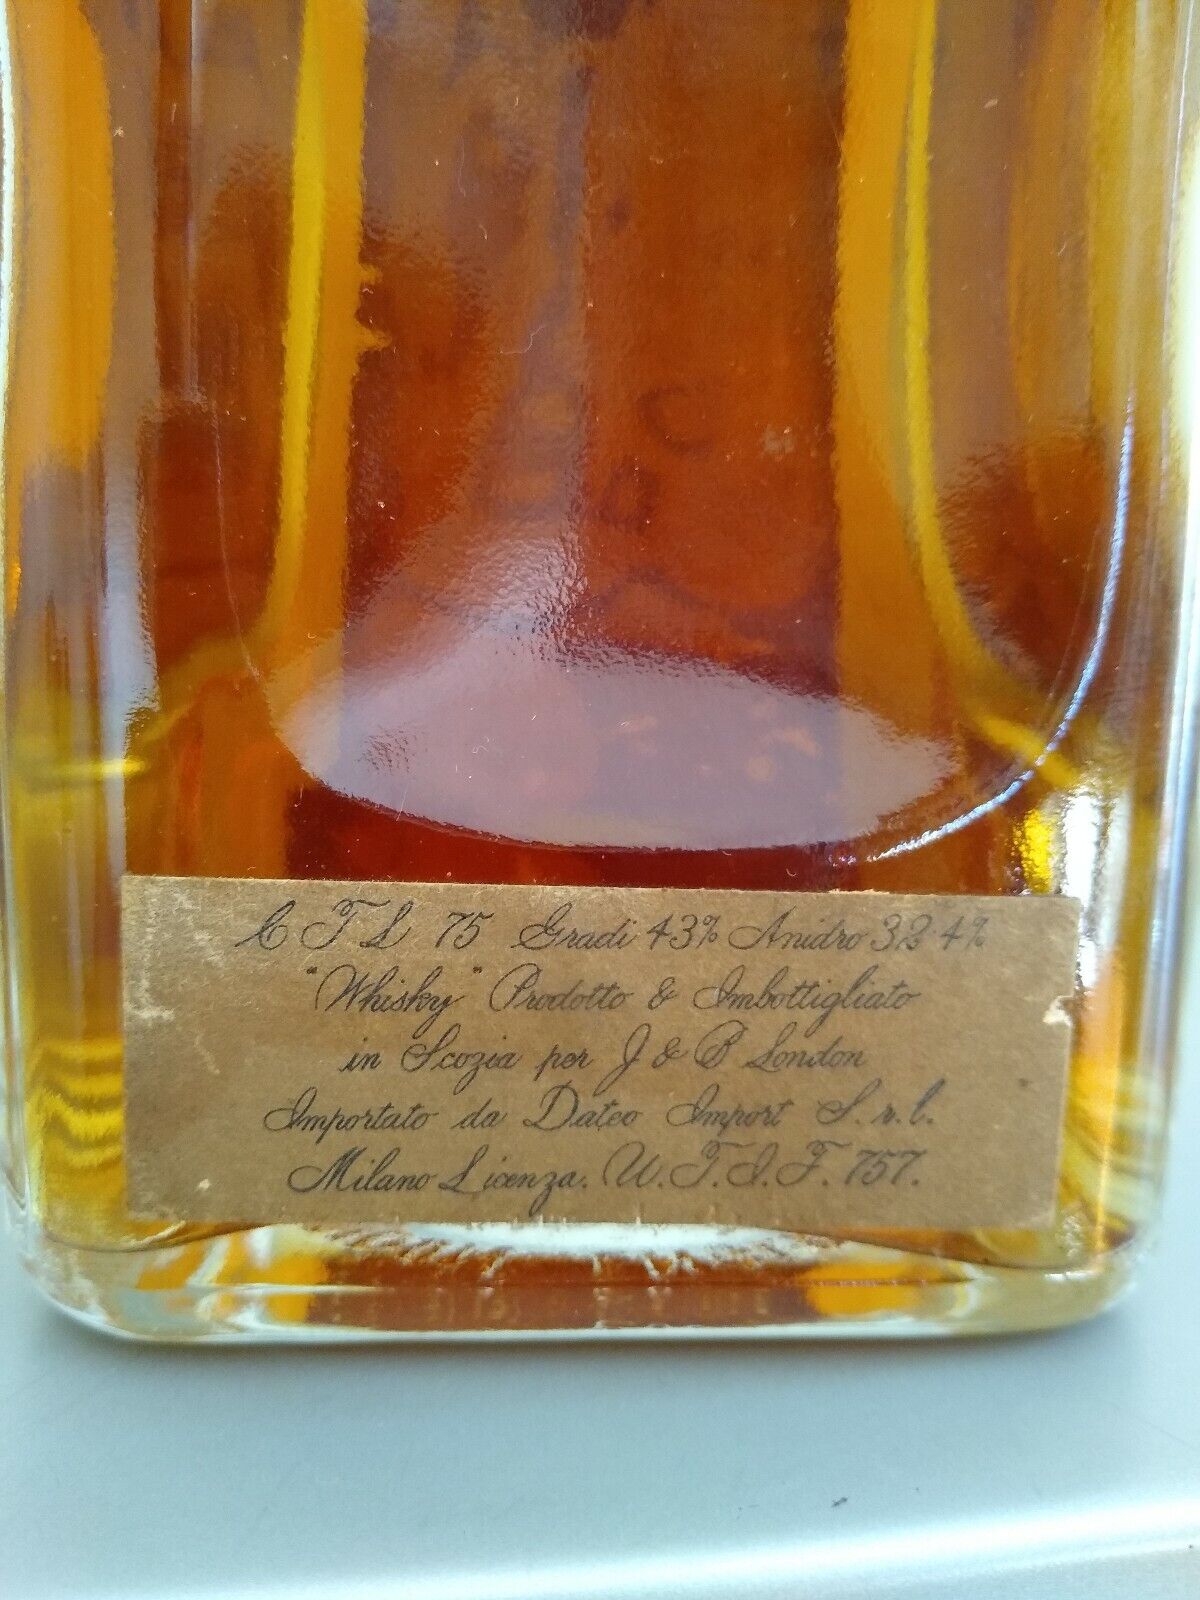 C T L 75 Gradi 43% Anidro 32.4%
"Whisky" Prodotto & Imbottigliato
in Scozia per J & B London
Importato da Dateo Import S.r.l.
Milano Licenza. U.T.I.F. 757.